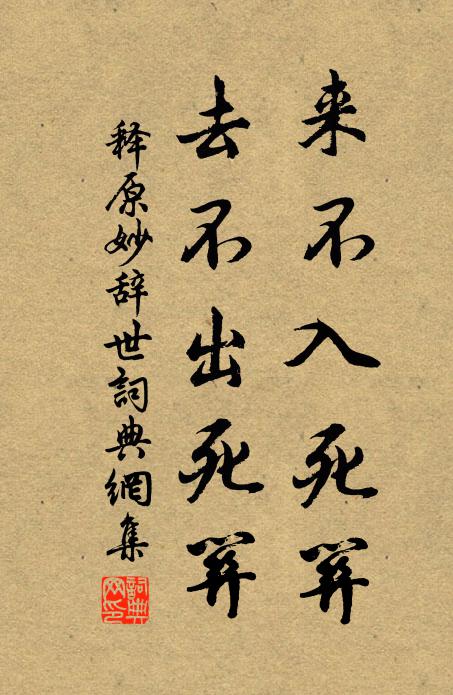 来不入死关
去不出死关
释原妙辞世詞典網集
詞典网印